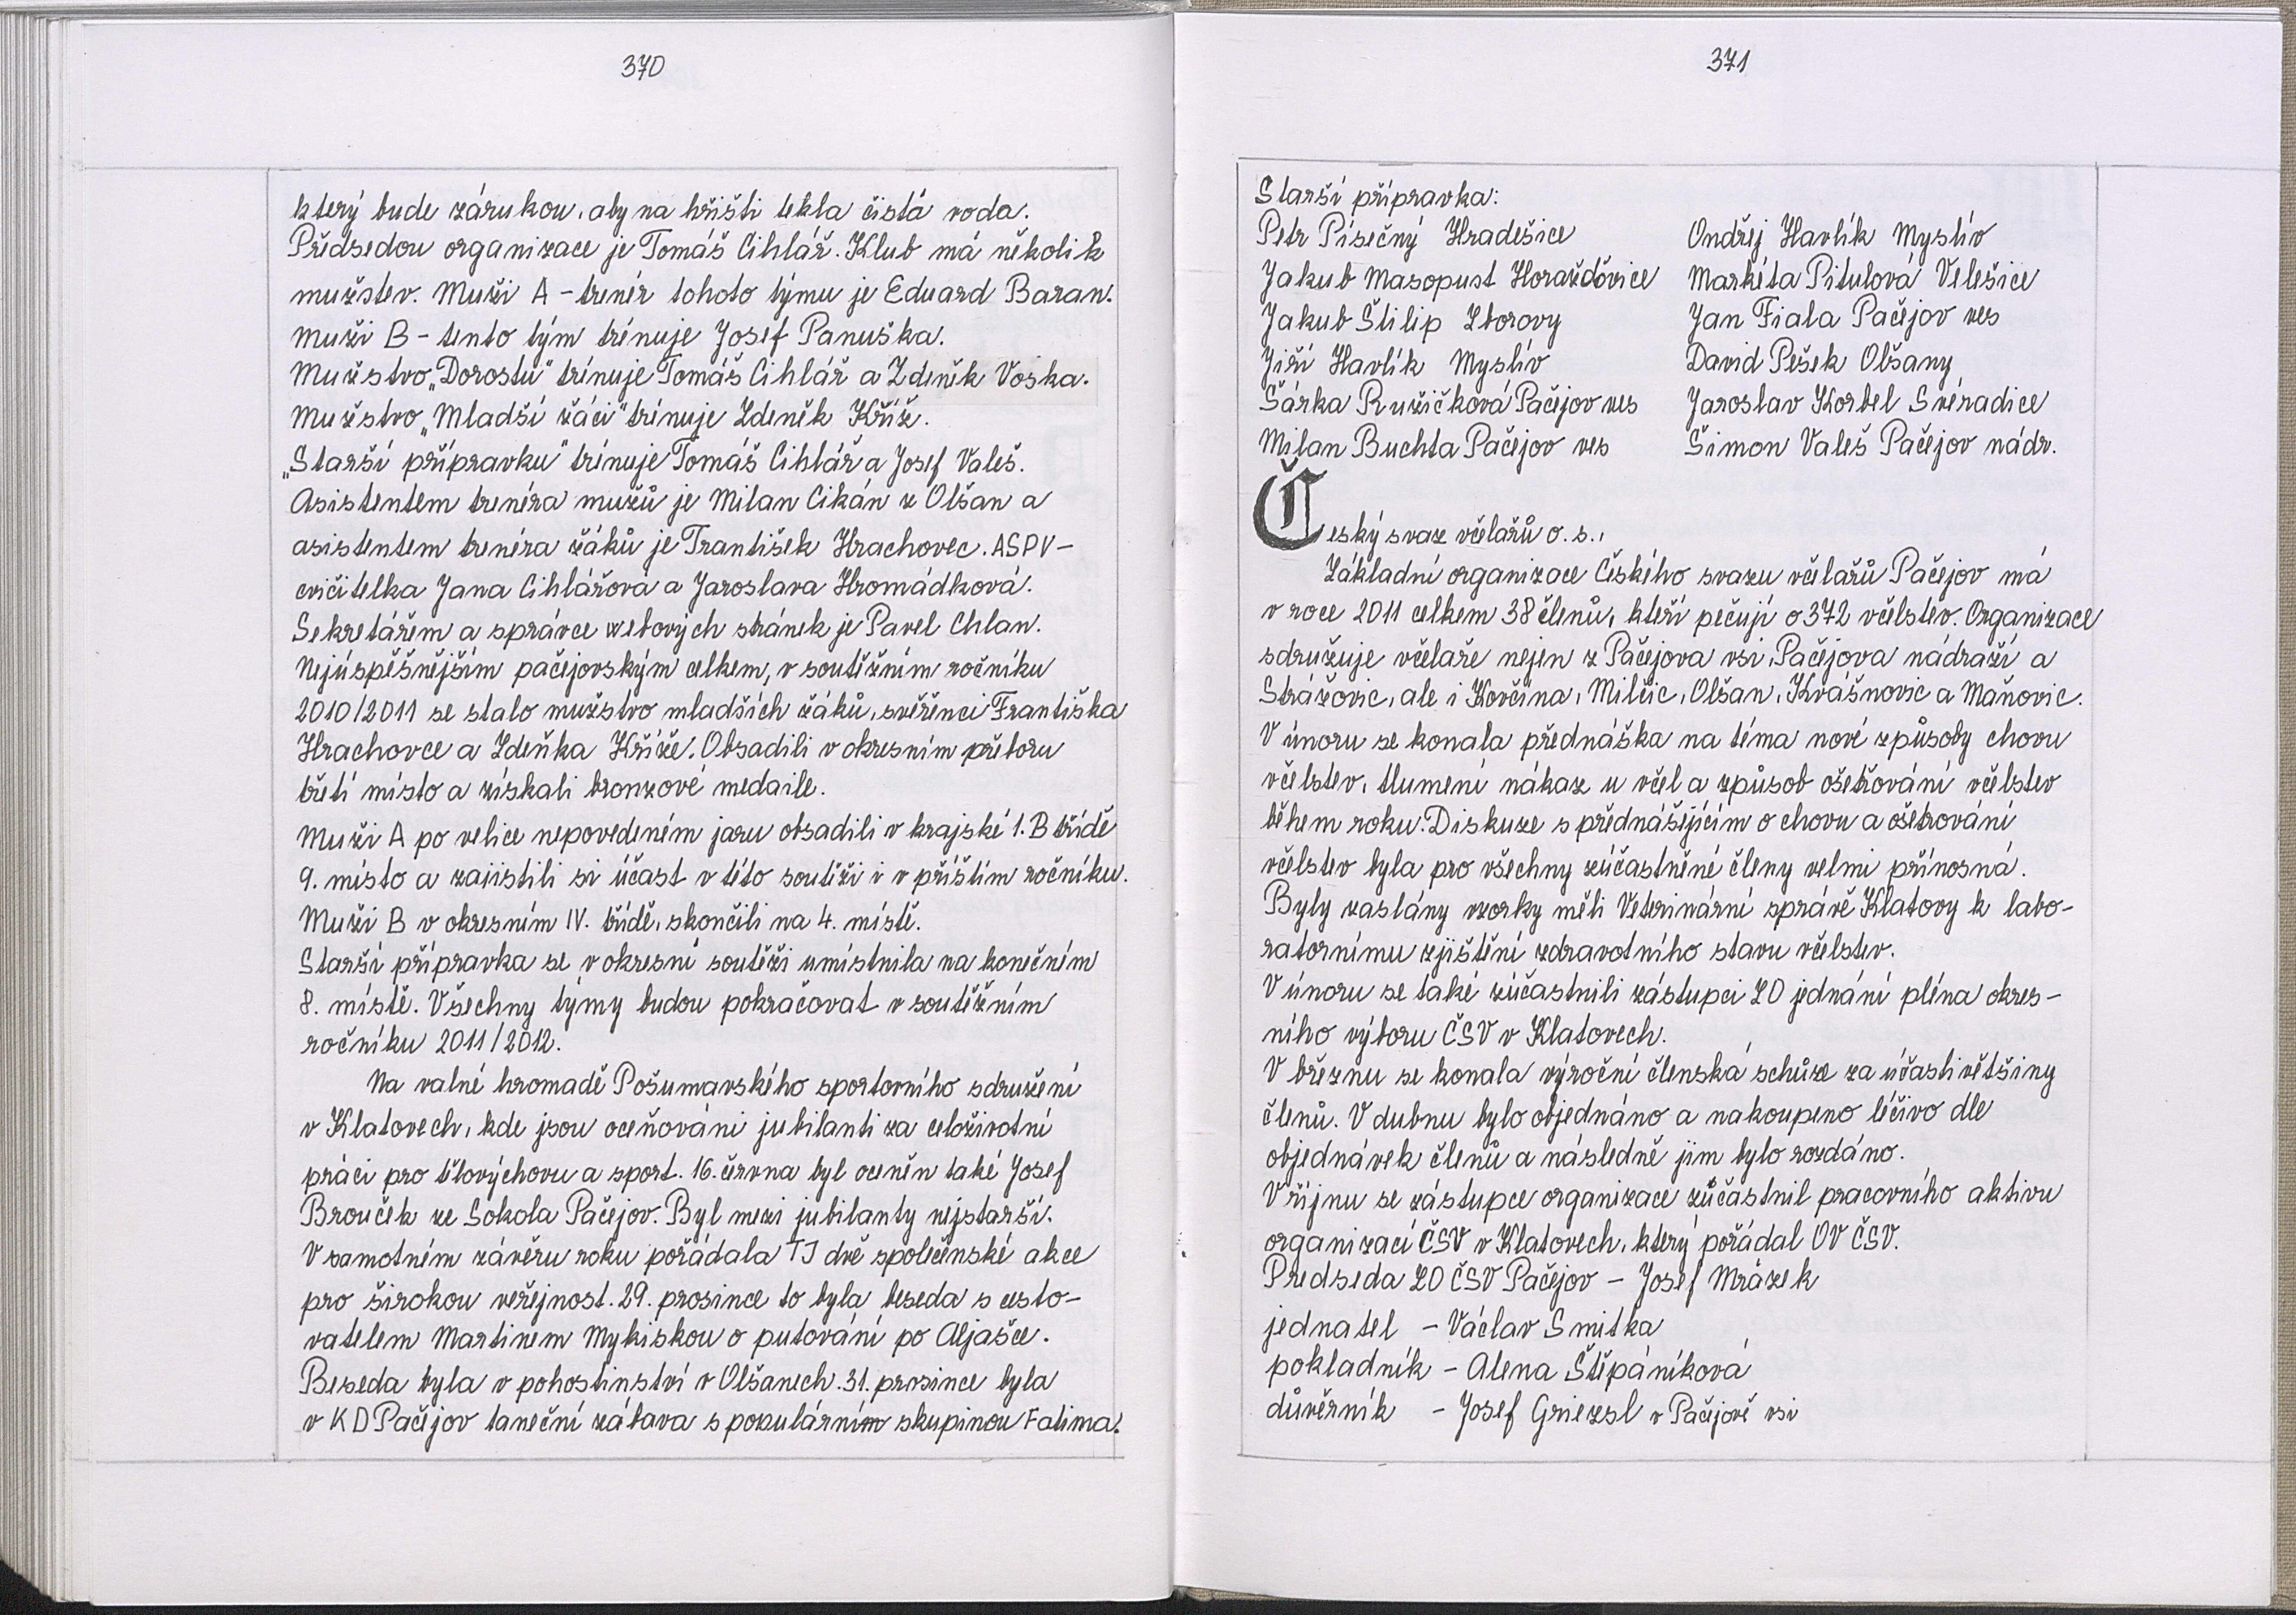 370
který bude zárukou, aby na hřišti tekla čistá voda.
Předsedou organizace je Tomáš Cihlář. Klub má několik
mužstev. Muži A - trenér tohoto týmu je Eduard Baran.
Muži B - tento tým trénuje Josef Panuška.
Mužstvo „Dorostu" trénuje Tomáš Cihlář a Zdeněk Voska.
Mužstvo „Mladší žáci" trénuje Zdeněk Kříž.
„Starší přípravku" trénuje Tomáš Cihlář a Josef Valeš.
Asistentem trenéra mužů je Milan Cikán z Olšan a
asistentem trenéra žáků je František Hrachovec. ASPV -
cvičitelka Jana Cihlářová a Jaroslava Hromádková.
Sekretářem a správce webových stránek je Pavel Chlan.
Nejúspěšnějším pačejovským celkem, v soutěžním ročníku
2010/2011 se stalo mužstvo mladších žáků, svěřenci Františka
Hrachovce a Zdeňka Kříže. Obsadili v okresním přeboru
třetí místo a získali bronzové medaile.
Muži A po velice nepovedeném jaru obsadili v krajské 1. B třídě
9. místo a zajistili si účast v této soutěži i v příštím ročníku.
Muži B v okresním IV. třídě, skončili na 4. místě.
Starší přípravka se v okresní soutěži umístnila na konečném
8. místě. Všechny týmy budou pokračovat v soutěžním
ročníku 2011/2012.
Na valné hromadě Pošumavského sportovního sdružení
v Klatovech, kde jsou oceňováni jubilanti za celoživotní
práci pro tělovýchovu a sport. 16. června byl oceněn také Josef
Brouček ze Sokola Pačejov. Byl mezi jubilanty nejstarší.
V samotném závěru roku pořádala TJ dvě společenské akce
pro širokou veřejnost. 29. prosince to byla beseda s cesto-
vatelem Martinem Mykiskou o putování po Aljašce.
Beseda byla v pohostinství v Olšanech. 31. prosince byla
v KD Pačejov taneční zábava s populárním skupinou Fatima.
371
Starší přípravka:
Petr Písečný Hradešice Ondřej Havlík Myslív
Jakub Masopust Horažďovice Markéta Pitulová Velešice
Jakub Štilip Zborovy Jan Fiala Pačejov ves
Jiří Havlík Myslív David Pešek Olšany
Šárka Ružičková Pačejov ves Jaroslav Korbel Svéradice
Milan Buchta Pačejov ves Šimon Valeš Pačejov nádr.
Český svaz včelařů o. s.,
Základní organizace Českého svazu včelařů Pačejov má
v roce 2011 celkem 38 členů, kteří pečují o 372 včelstev. Organizace
sdružuje včelaře nejen z Pačejova vsi, Pačejova nádraží a
Strážovic, ale i Kovčína, Milčic, Olšan, Kvášňovic a Maňovic.
V únoru se konala přednáška na téma nové způsoby chovu
včelstev, tlumení nákaz u včel a způsob ošetřování včelstev
během roku. Diskuze s přednášejícím o chovu a ošetrování
včelstev byla pro všechny zúčastněné členy velmi přínosná.
Byly zaslány vzorky měli Veterinární správě Klatovy k labo-
ratornímu zjištění zdravotního stavu včelstev.
V únoru se také zúčastnili zástupci ZO jednání pléna okres-
ního výboru ČSV v Klatovech.
V březnu se konala výroční členská schůze za účasti většiny
členů. V dubnu bylo objednáno a nakoupeno léčivo dle
objednávek členů a následně jim bylo rozdáno.
V říjnu se zástupce organizace zůčastnil pracovního aktivu
organizací ČSV v Klatovech, který pořádal OV ČSV.
Predseda ZO ČSV Pačejov - Josef Mrázek
jednatel - Václav Smitka
pokladník - Alena Štěpáníková
důvěrník - Josef Griezsl v Pačejově vsi